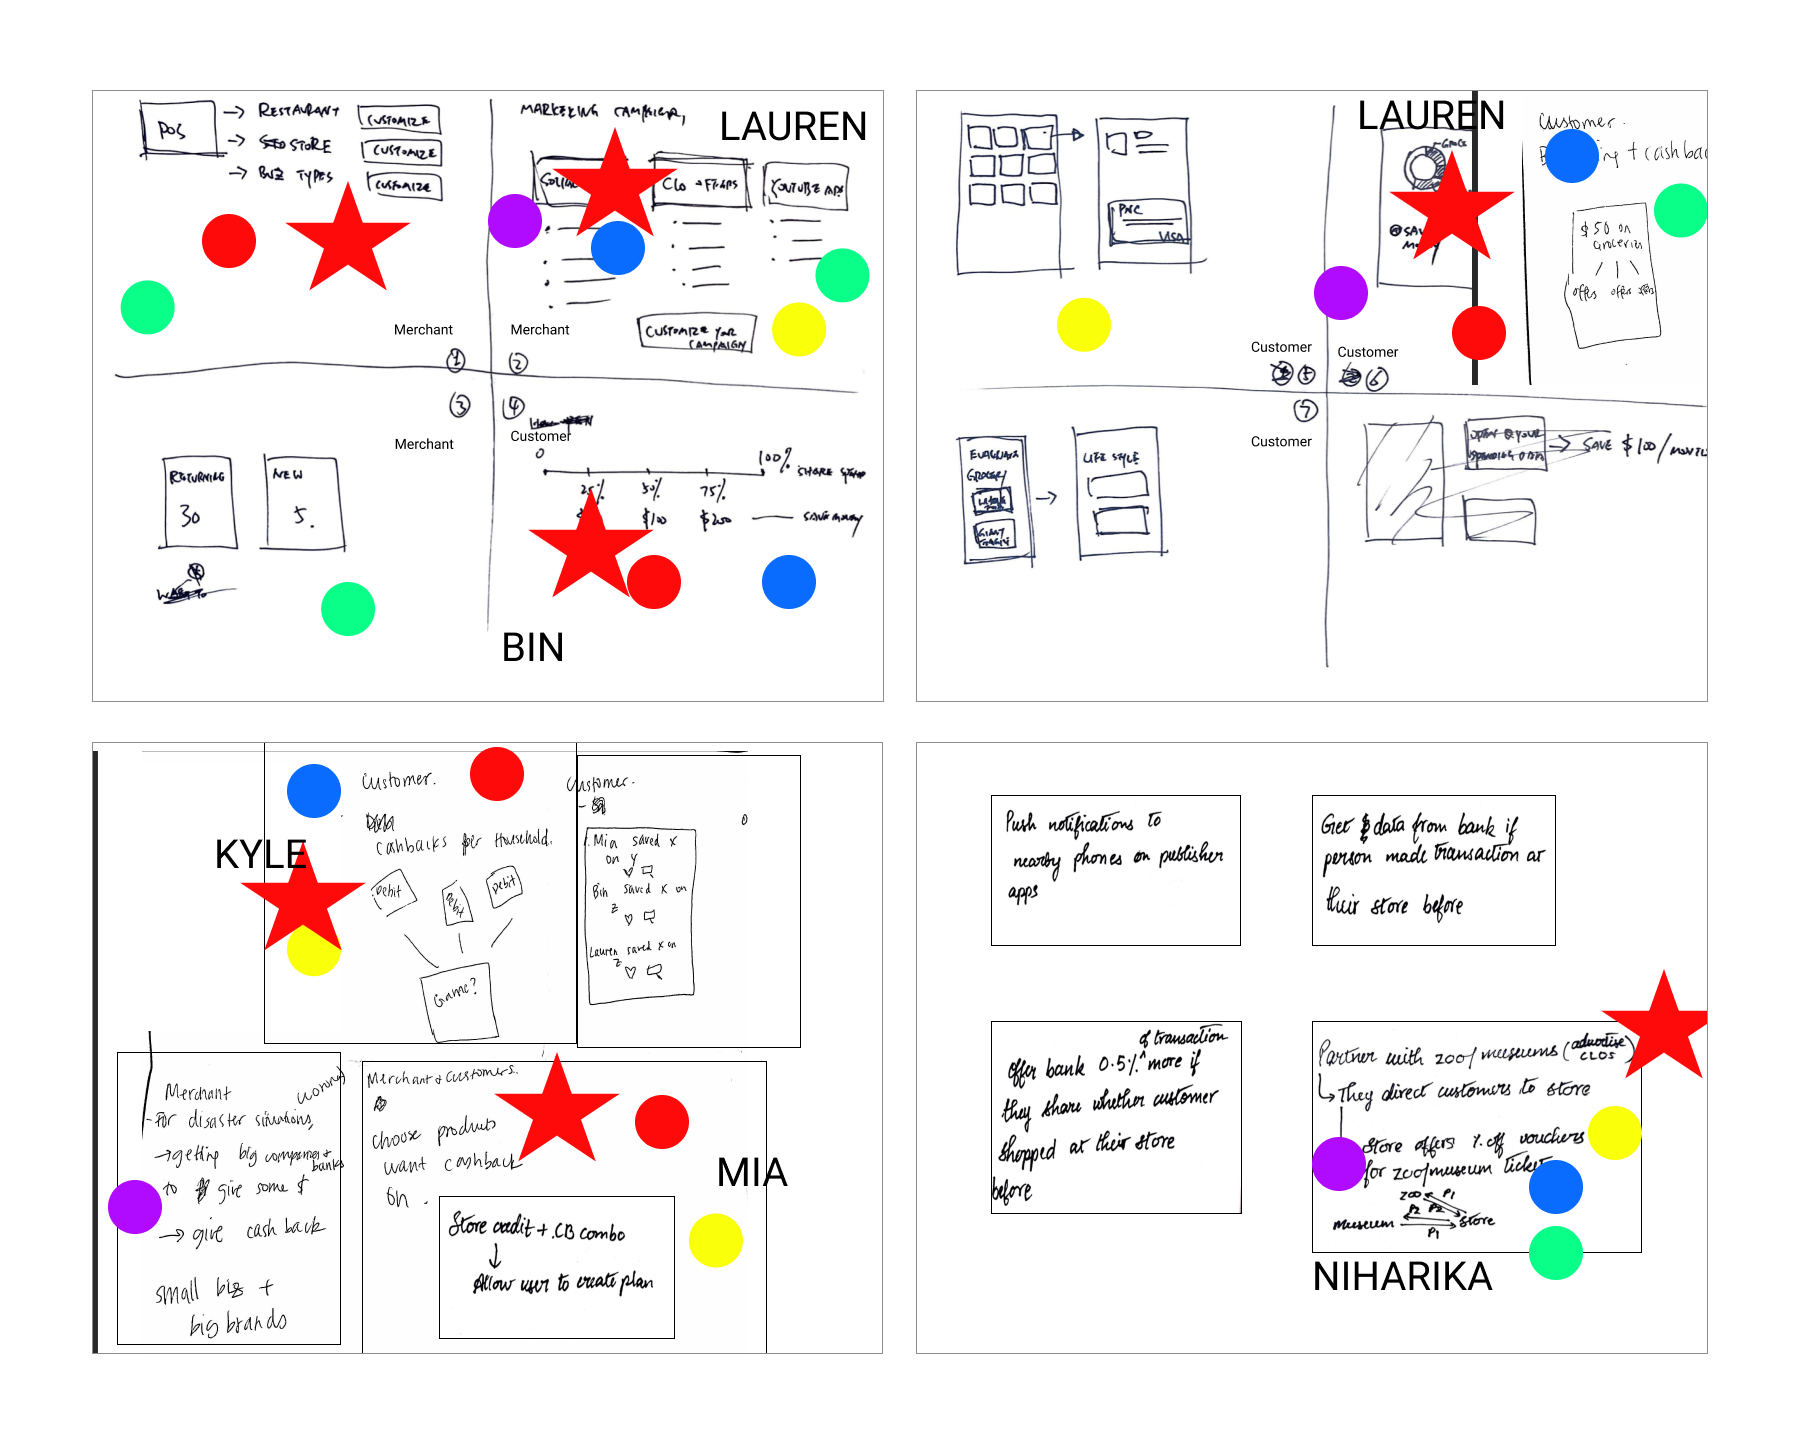 LAUREN
POS
→ RESTAURANT
CUSTOMIZE
→ STORE
CUSTOMIZE
→ BIZ TYPES
CUSTOMIZE
Merchant
1
MARKETING CAMPAIGN,
CLO → FSAPS
YOUTUBE ADS
CUSTOMIZE YOUR
CAMPAIGN
Merchant
2
3
Merchant
RETURNING
30
NEW
5.
4
Customer
0
100%
SHARE SPEND
25%
50%
75%
$100
$200
SAVE MONEY
BIN
LAUREN
PNC
VISA
Customer
5
Customer
6
Customer.
+ cash bac
$50 on
Groceries
offers offers offers
7
Customer
GROCERY
GIANT
LIFE STYLE
→ SAVE $100/
KYLE
Customer.
Cashbacks per Household.
Debit
Debit
Game?
Customer.
1. Mia saved x
on y
Bin saved x on
z
Lauren saved x on
z
Merchant
- For disaster situations,
→ getting big companies +
banks
to give some $
→ give cash back
small biz +
big brands
Merchant + Customers.
choose products
want cashback
on .
MIA
Store credit + CB combo
↓
Allow user to create plan
Push notifications to
nearby phones on publisher
apps
Get data from bank if
person made transaction at
their store before
of transaction
Offer bank 0.5% ^ more if
they share whether customer
shopped at their store
before
Partner with zoo/museums (advertise
CLOS)
↳ They direct customers to store
Store offers % off vouchers
for zoo/museum ticket
zoo P1
P2 P2
museum Store
P1
NIHARIKA